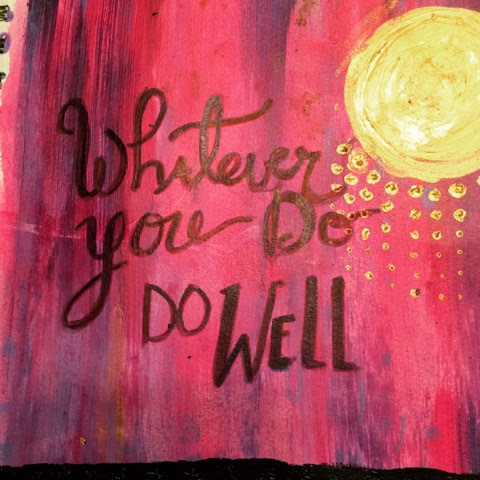 Whatever
you Do
DO WELL